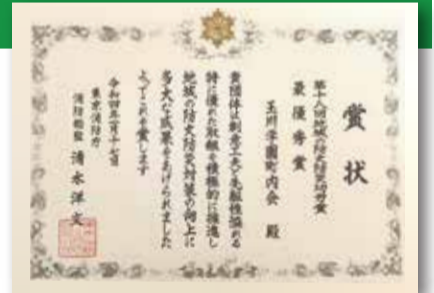 賞状
第十八回地域の防火防災功労賞
最優秀賞
玉川学園町内会 殿
貴団体は創意工夫と先駆性溢れる
特に優れた取組を積極的に推進し
地域の防火防災対策の向上に
多大な成果をあげられました
よつてこれを賞します
令和四年一月十七日
東京消防庁
消防総監 清水洋文